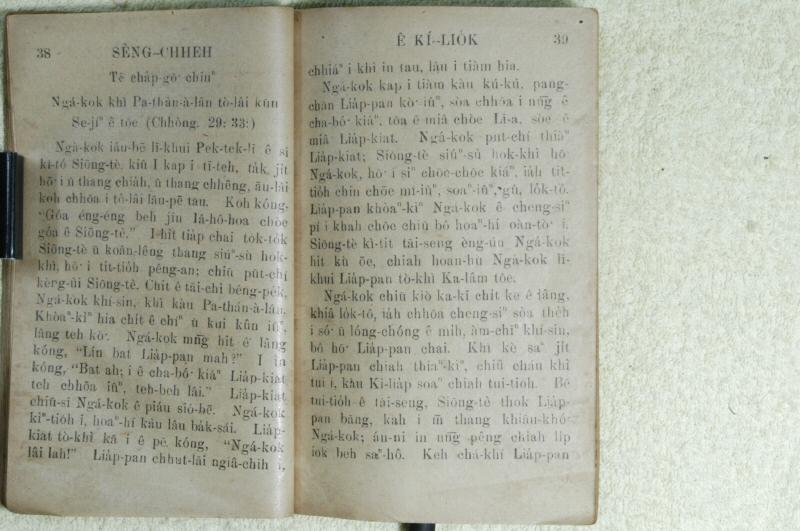 38 SÊNG-CHHEH
Tē cha̍p-gō͘ chiuⁿ
Ngá-kok khì Pa-thàn-à-lân tò-lâi kūn
Se-jíⁿ ê tōe (Chhòng. 29: 33:)
Ngá-kok iáu-bē lī-khui Pek-tek-lī ê sî
kî-tó Siōng-tè, kiû I kap i tī-teh, ta̍k ji̍t
hō͘ i ū thang chia̍h, ū thang chhēng, āu-lâi
koh chhōa i tò-lâi lāu-pē tau. Koh kóng,
"Góa éng-éng beh jīn Iâ-hô-hoa chòe
góa ê Siōng-tè." I hit tia̍p chai to̍k-to̍k
Siōng-tè ū koân-lêng thang siúⁿ-sù hok-
khì, hō͘ i tit-tio̍h pêng-an; chiū pūt-chí
kèng-ùi Siōng-tè. Chit ê tāi-chì bêng-pe̍k,
Ngá-kok khí-sin, khì kàu Pa-thán-à-lân.
Khòaⁿ-kìⁿ hia chit ê chíⁿ ū kui kûn iûⁿ,
lâng teh kò͘. Ngá-kok mn̄g hit ê lâng
kóng, "Lín bat Lia̍p-pan mah?" I ìn
kóng, "Bat ah; i ê cha-bó͘ kiáⁿ Lia̍p-kiat
teh chhōa iûⁿ, teh-beh lâi." Lia̍p-kiat
chiū-sī Ngá-kok ê piáu sió-bē. Ngá-kok
kìⁿ-tio̍h i, hoaⁿ-hí kàu lâu ba̍k-sái. Lia̍p-
kiat tò-khì kā i ê pē kóng, "Ngá-kok
lâi lah!" Lia̍p-pan chhut-lâi ngiâ-chih i,
Ê KÌ-LIO̍K 39
chhiáⁿ i khì in tau, lâu i tiàm hia.
Ngá-kok kap i tiàm kàu kú-kú, pang-
chān Lia̍p-pan kò͘ iûⁿ, sòa chhōa i nn̄g ê
cha-bó͘ kiáⁿ, tōa ê miâ chòe Lī-a, sòe ê
miâ Lia̍p-kiat. Ngá-kok put-chí thiàⁿ
Lia̍p-kiat; Siōng-tè siúⁿ-sù hok-khì hō͘
Ngá-kok, hō͘ i siⁿ chōe-chōe kiáⁿ, ia̍h tit-
tio̍h chin chōe mi̍h-iûⁿ, soaⁿ-iûⁿ, gû, lo̍k-tô.
Lia̍p-pan khòaⁿ-kìⁿ Ngá-kok ê cheng-siⁿ
pí i khah chōe chiū bô hoaⁿ-hí oàn-tò͘ i.
Siōng-tè kì-tit tāi-seng èng-ún Ngá-kok
hit kù ōe, chiah hoan-hù Ngá-kok lī-
khui Lia̍p-pan tò-khì Ka-lâm tōe.
Ngá-kok chiū kiò ka-kī chit ke ê lâng,
khiâ lo̍k-tô, ia̍h chhōa cheng-siⁿ sòa the̍h
i só͘ ū lóng-chóng ê mih, àm-chīⁿ khí-sin,
bô hō͘ Lia̍p-pan chai. Khì kè saⁿ ji̍t
Lia̍p-pan chiah thiaⁿ-kìⁿ, chiū chhán khì
tui i, kàu Ki-lia̍p soaⁿ chiah tui-tio̍h. Bē
tui-tio̍h ê tāi-seng, Siōng-tè thok Lia̍p-
pan bāng, kah i m̄ thang khiàu-khó͘
Ngá-kok; án-ni in nn̄g pêng chiah li̍p
iok beh saⁿ-hô. Keh chá-khí Lia̍p-pan